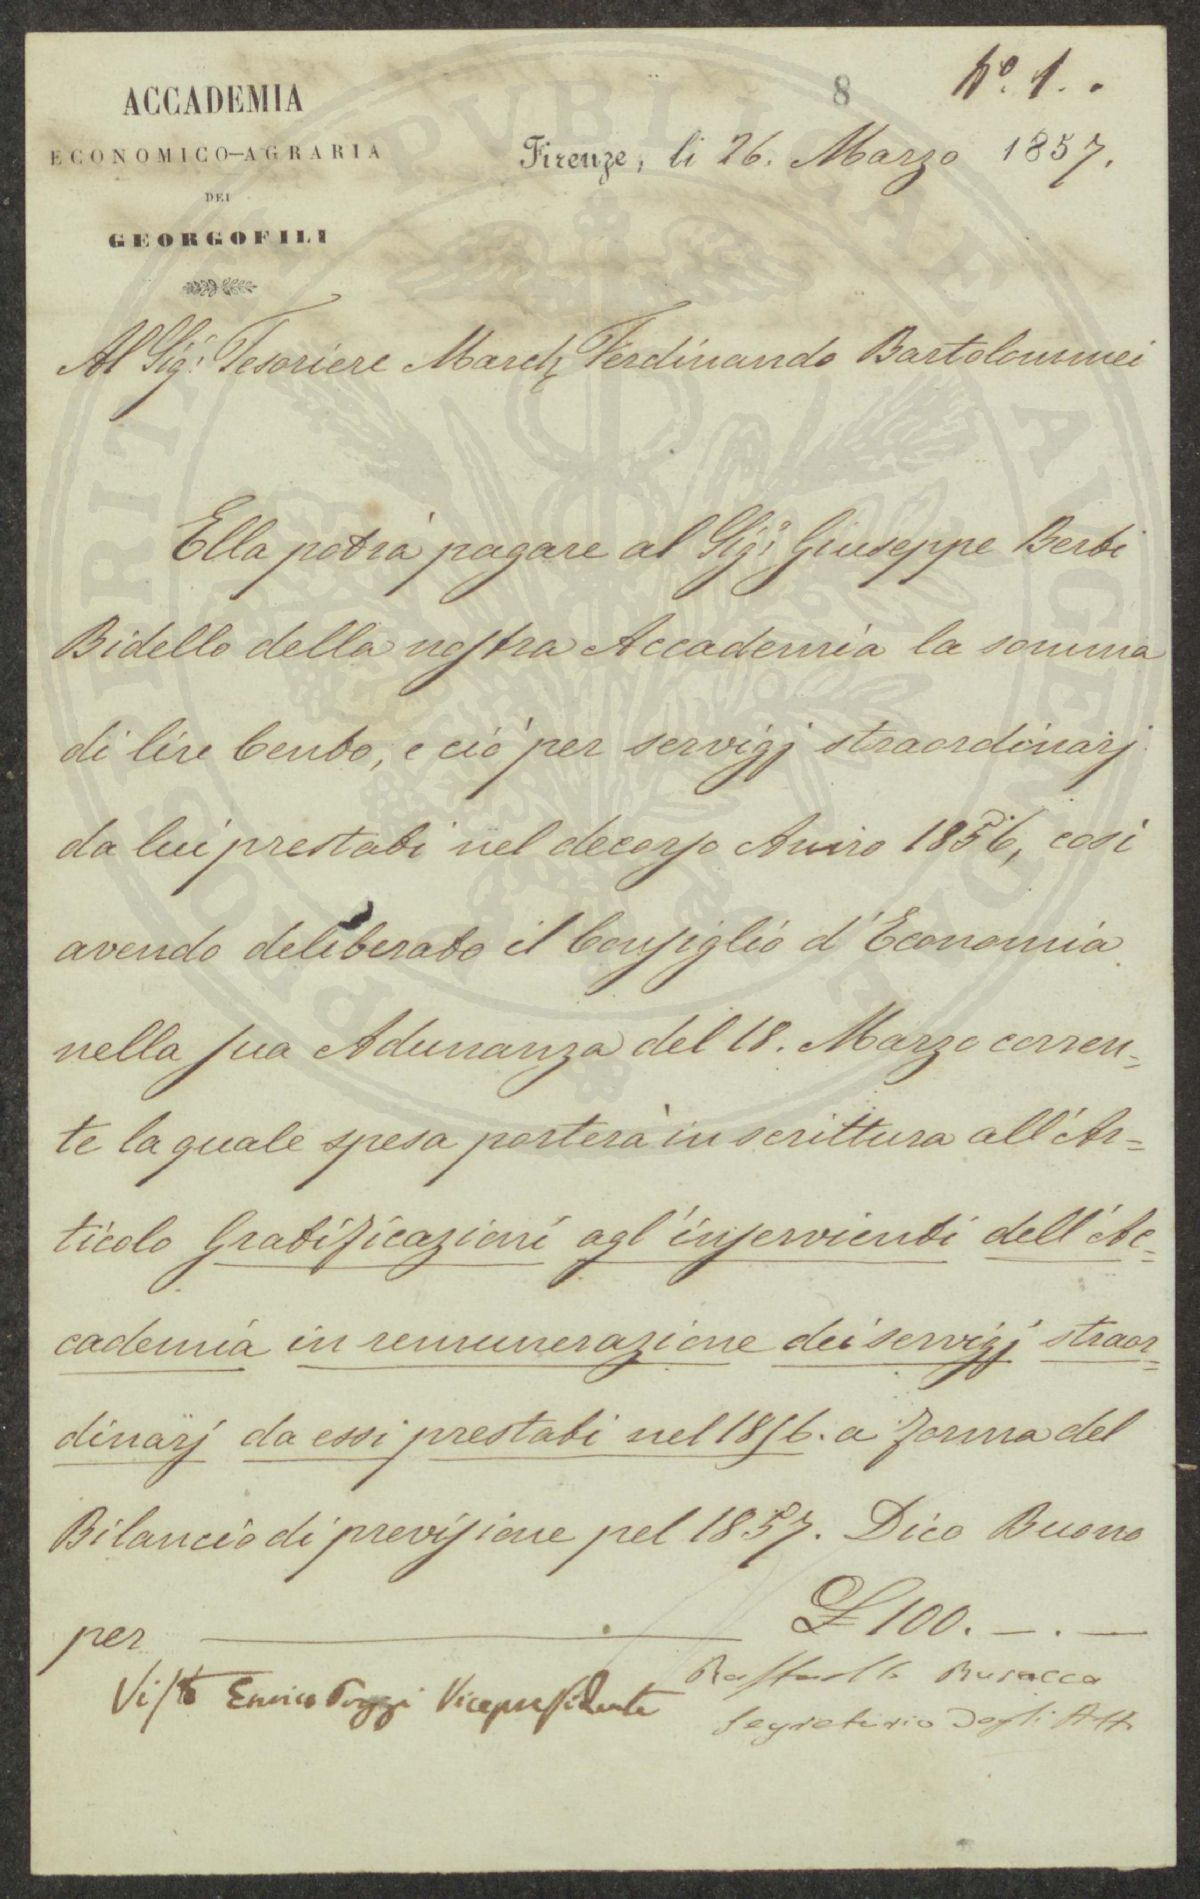 ACCADEMIA
ECONOMICO-AGRARIA
DEI
GEORGOFILI
8
N.º 1.
Firenze, li 26. Marzo 1857.
Al Sig.r Tesoriere March. Ferdinando Bartolommei
Ella potrà pagare al Sig.r Giuseppe Berti
Bidello della nostra Accademia la somma
di lire Cento, e ciò per servigj straordinarj
da lui prestati nel decorso Anno 1856, così
avendo deliberato il Consiglio d'Economia
nella sua Adunanza del 18. Marzo corren=
te la quale spesa porterà in scrittura all'Ar=
ticolo Gratificazioni agl'inservienti dell'Ac=
cademia in remunerazione dei servigj straor=
dinarj da essi prestati nel 1856. a forma del
Bilancio di previsione pel 1857. Dico Buono
per ——— £ 100. — . —
Visto Enrico Poggi Vicepresidente
Raffaello Busacca
Segretario degli Atti
PROSPERITATI PVBLICAE AVGENDAE